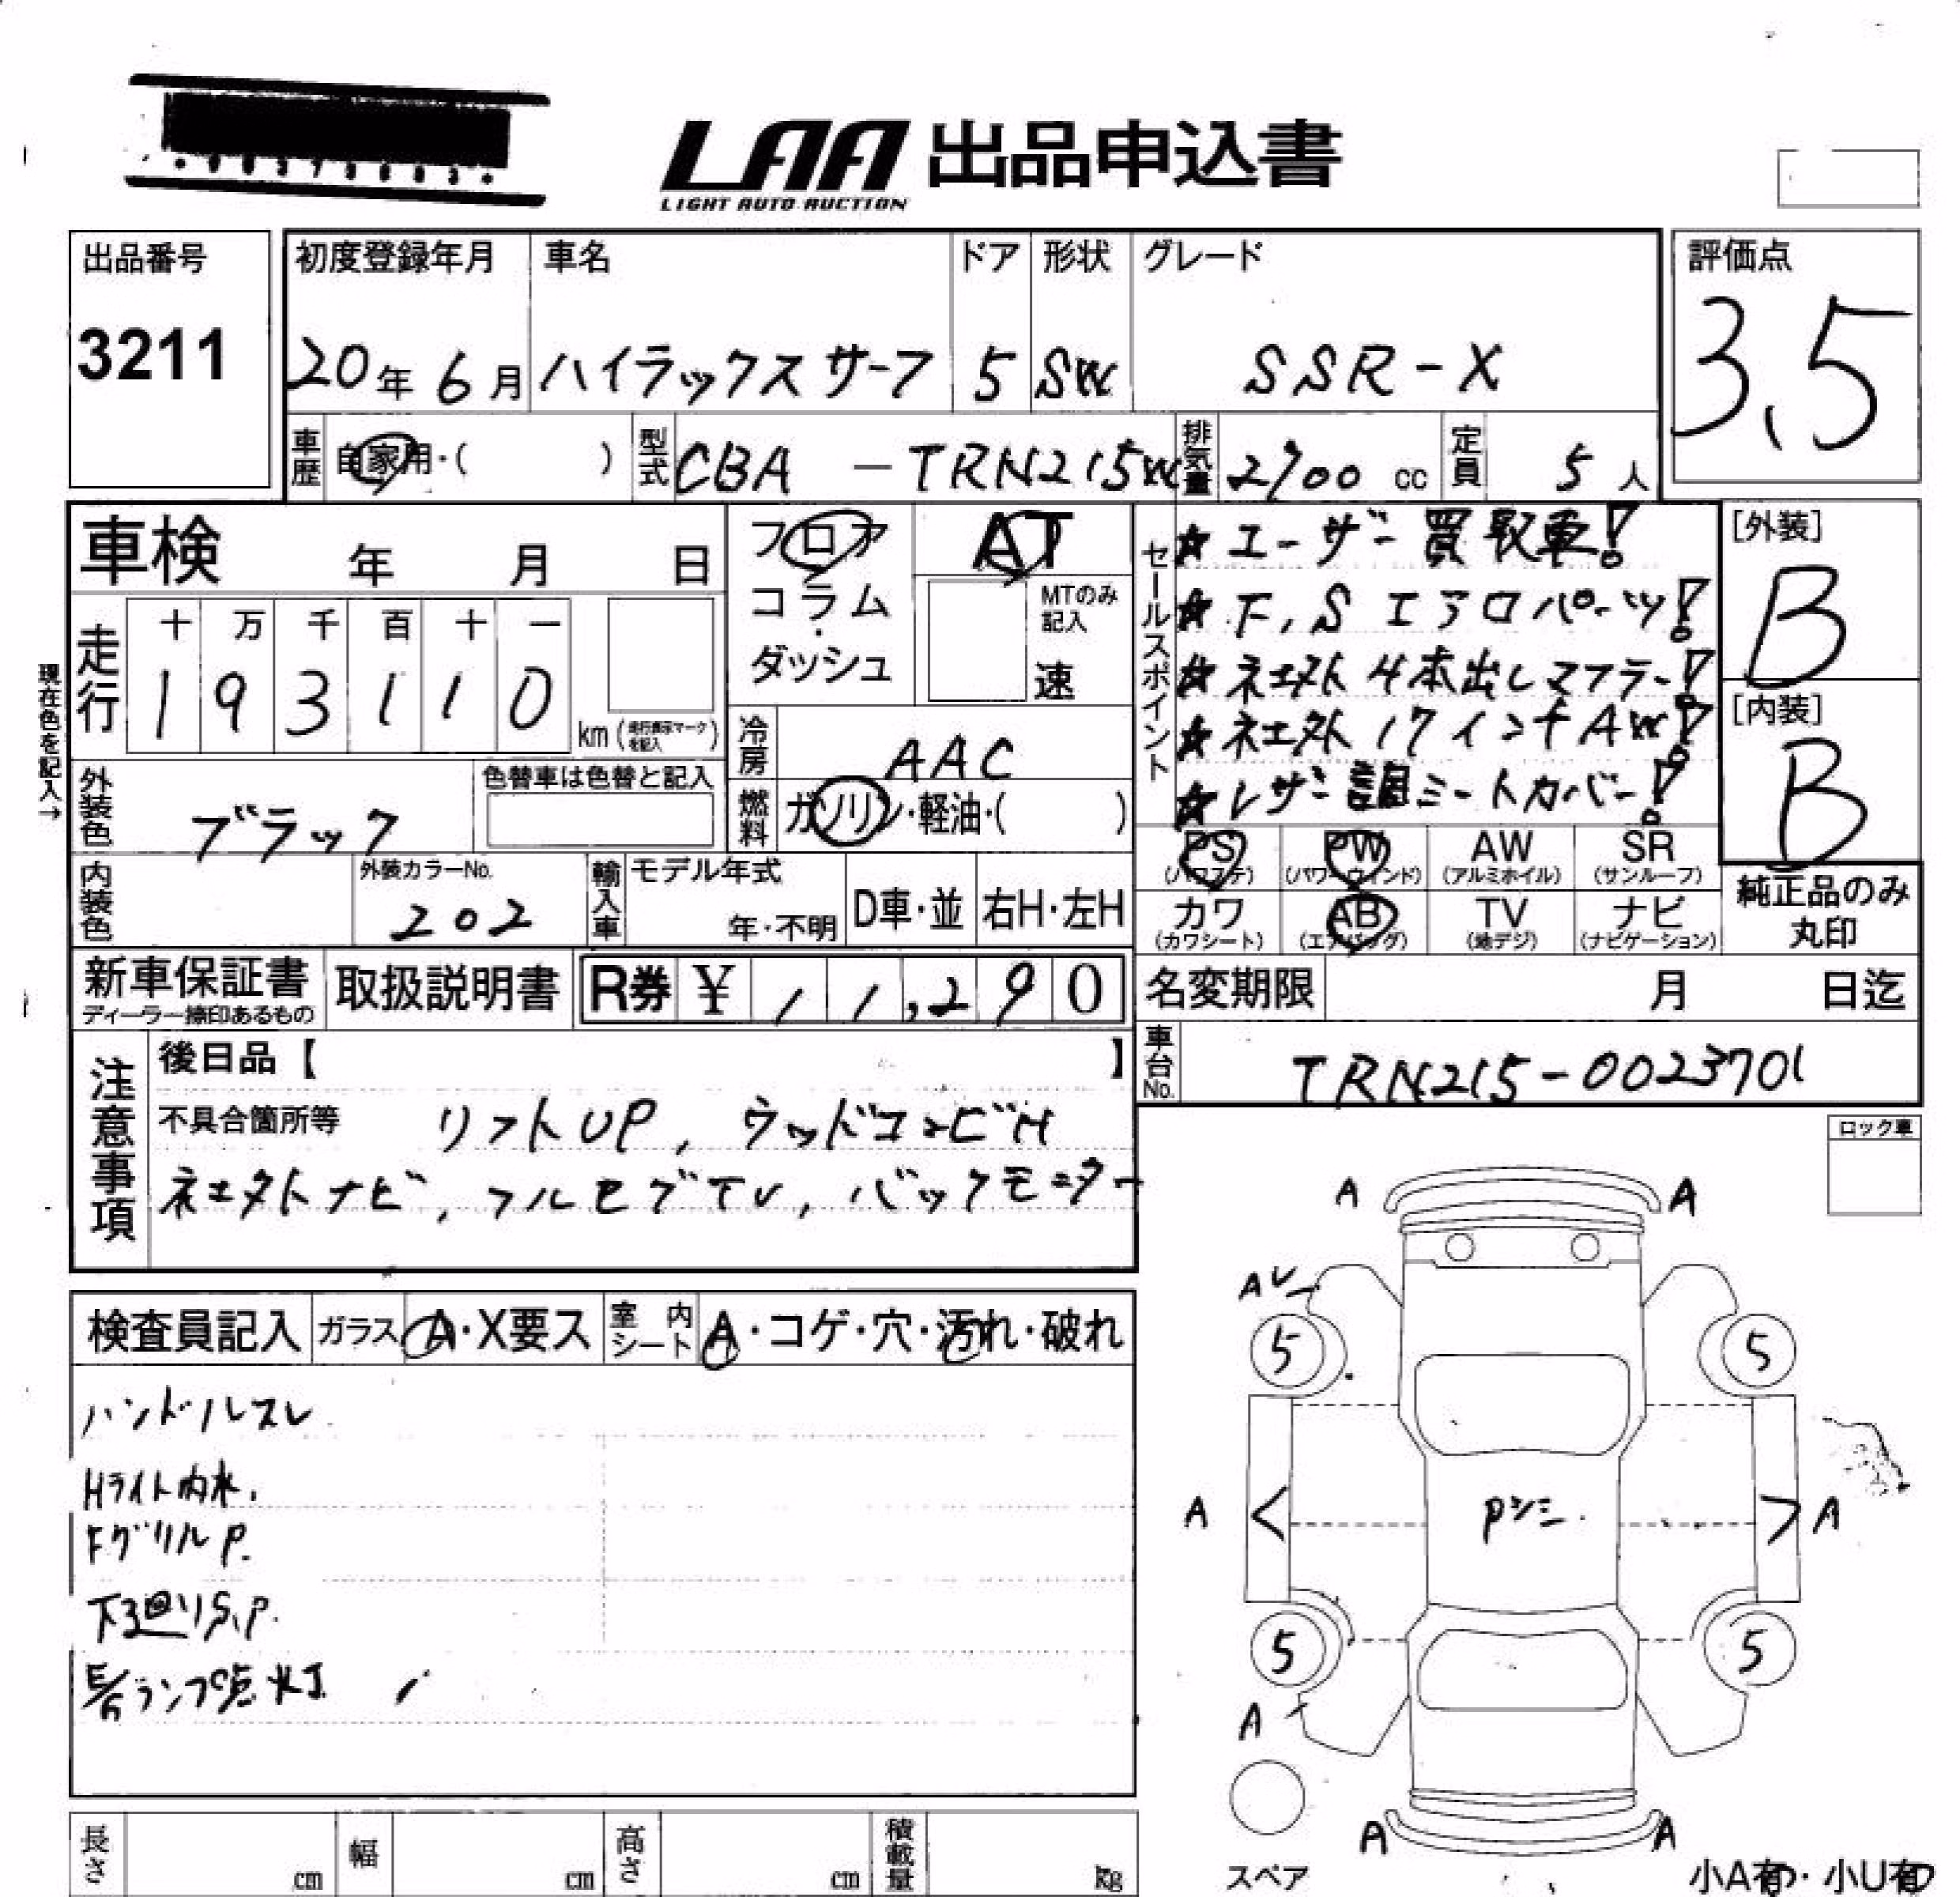 LAA 出品申込書
LIGHT AUTO AUCTION
出品番号
3211
初度登録年月 車名 ドア 形状 グレード
20年 6月 ハイラックスサーフ 5 SW SSR-X
評価点
3.5
車歴 自家用・( ) 型式 CBA -TRN215W 排気量 2700 cc 定員 5人
車検 年 月 日
走行
十 万 千 百 十 一
1 9 3 1 1 0 km (走行表示マークを記入)
現在色を記入→
外装色 ブラック 色替車は色替と記入
内装色 外装カラーNo. 202
輸入車 モデル年式 年・不明 D車・並 右H・左H
フロア
コラム・
ダッシュ
AT
MTのみ記入
速
冷房 AAC
燃料 ガソリン・軽油・( )
セールスポイント
☆ユーザー買取車!
☆F,Sエアロパーツ!
☆社外4本出しマフラー!
☆社外17インチAW!
☆レザー調シートカバー!
[外装]
B
[内装]
B
PS PW AW SR
(パワステ) (パワーウィンド) (アルミホイル) (サンルーフ)
カワ AB TV ナビ
(カワシート) (エアバッグ) (地デジ) (ナビゲーション)
純正品のみ
丸印
新車保証書
ディーラー捺印あるもの
取扱説明書 R券 ¥ 11,290
名変期限 月 日迄
車台No. TRN215-0023701
注意事項
後日品【 】
不具合箇所等 リフトUP, ウッドコンビH
社外ナビ, フルセグTV, バックモニター
ロック車
検査員記入 ガラス A・X要ス 室内シート A・コゲ・穴・汚れ・破れ
ハンドルスレ
Hライト内水.
FグリルP.
下廻りS,P.
警告ランプ点灯
A A
AU
5 5
A < Pシミ. > A
5 5
A
A A
スペア
小A有・小U有
長さ cm 幅 cm 高さ cm 積載量 kg